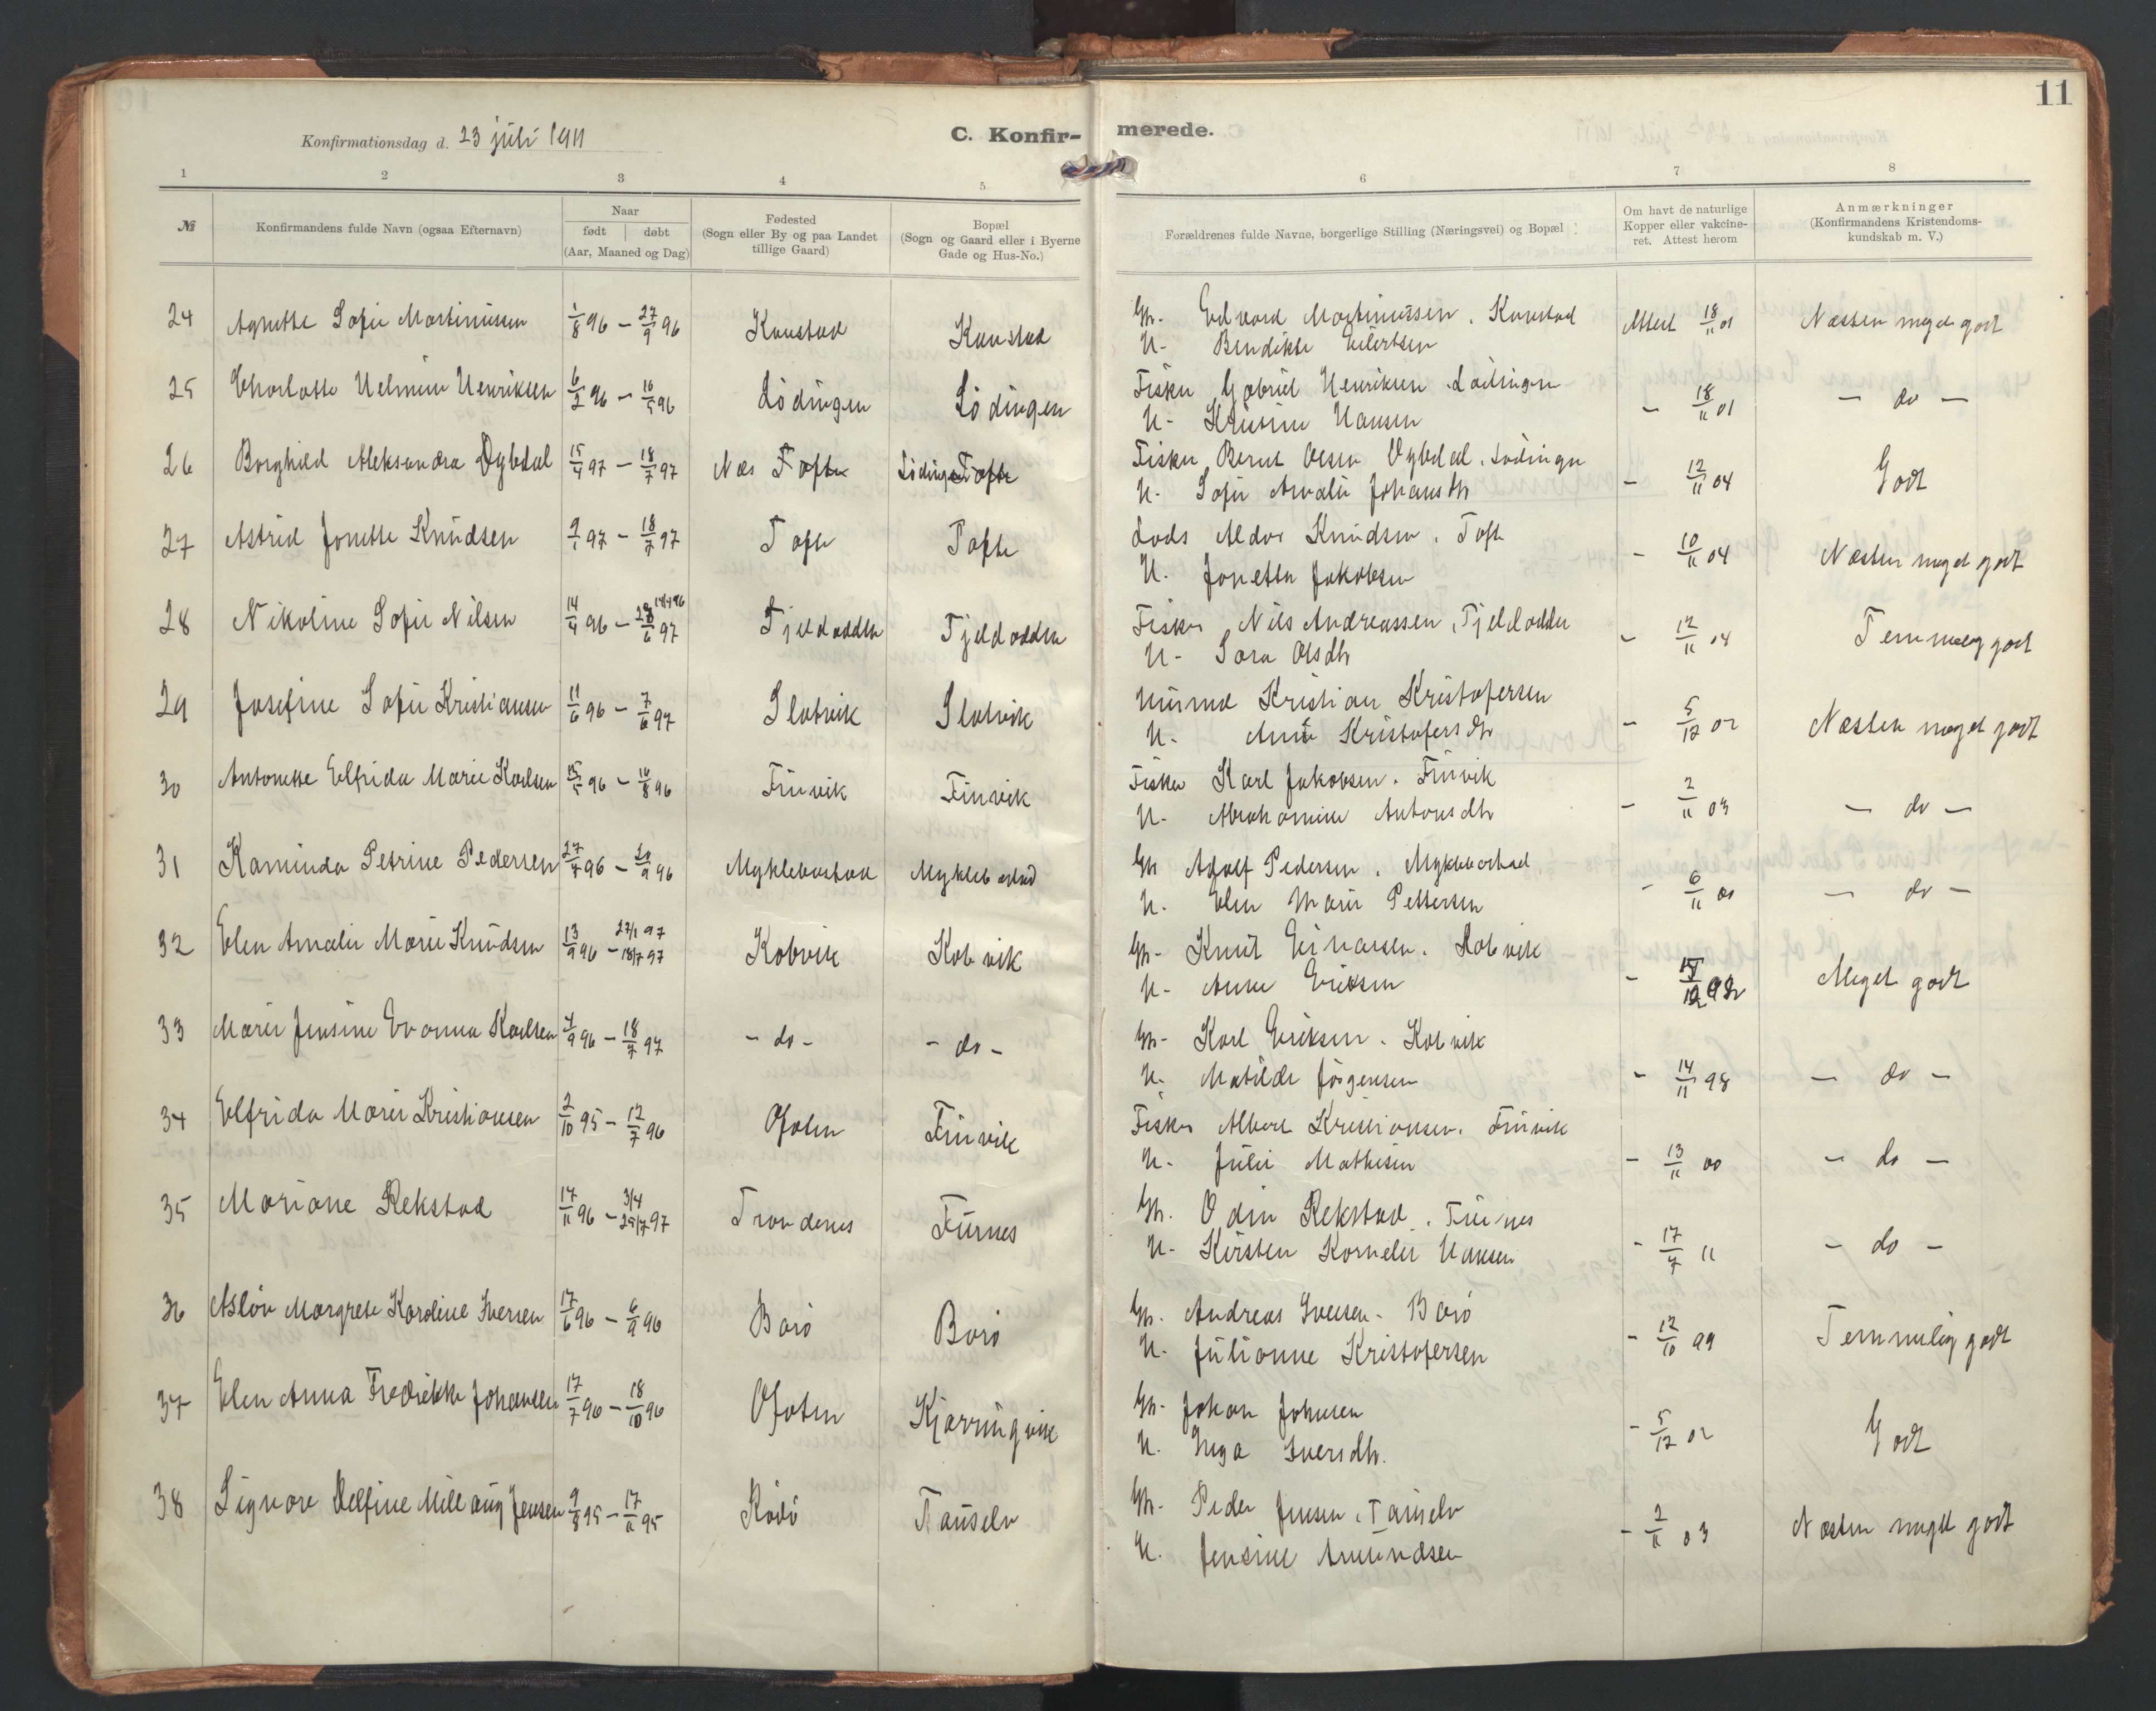 11
Konfirmationsdag d. 23 juli 1911
C. Konfir- merede.
1 2 3 4 5 6 7 8
№
Konfirmandens fulde Navn (ogsaa Efternavn)
Naar
født døbt
(Aar, Maaned og Dag)
Fødested
(Sogn eller By og paa Landet
tillige Gaard)
Bopæl
(Sogn og Gaard eller i Byerne
Gade og Hus-No.)
Forældrenes fulde Navne, borgerlige Stilling (Næringsvei) og Bopæl
Om havt de naturlige
Kopper eller vakcine-
ret. Attest herom
Anmærkninger
(Konfirmandens Kristendoms-
kundskab m. V.)
24 Agnethe Sofie Martinussen 1/8 96 – 27/9 96 Kanstad Kanstad Gm. Edvard Martinussen. Kanstad Attest 18/11 01 Næsten meget godt
H. Bendikte Eilertsen
25 Charlotte Helmine Henriksen 6/2 96 – 16/5 96 Lødingen Lødingen Fisker Gabriel Henriksen. Lødingen – 18/11 01 – do –
H. Kristine Hansen
26 Borghild Aleksandra Dybdal 15/4 97 – 18/7 97 Næs Tofte Lødingen Tofte Fisker Bernt Olsen Dybdal. Lødingen – 12/11 04 Godt
H. Sofie Amalie Johansdtr
27 Astrid Jonette Knudsen 9/1 97 – 18/7 97 Tofte Tofte Lods Aldor Knudsen. Tofte – 10/11 04 Næsten meget godt
H. Jonetta Jakobsen
28 Nikoline Sofie Nilsen 14/4 96 – 28/6 97 Fjeldodden Fjeldodden Fisker Nils Andreassen, Fjeldodden – 12/11 04 Temmelig godt
H. Sara Olsdtr
29 Josefine Sofie Kristiansen 11/6 96 – 7/6 97 Slotvik Slotvik Husmd Kristian Kristofersen – 5/12 02 Næsten meget godt
H. Anne Kristofersdtr
30 Antonette Elfrida Marie Karlsen 15/5 96 – 16/8 96 Finvik Finvik Fisker Karl Jakobsen. Finvik – 2/11 03 – do –
H. Abrahamine Antonsdtr
31 Kaminda Petrine Pedersen 27/7 96 – 20/9 96 Myklebostad Myklebostad Gm Adolf Pedersen. Myklebostad – 6/11 00 – do –
H. Elen Marie Pettersen
32 Elen Amalie Marie Knudsen 13/9 96 – 27/1 97 18/7 97 Kobvik Kobvik Gm. Knut Einarsen. Kobvik – Meget godt
H. Anne Eriksen
33 Marie Jensine Evanna Karlsen 4/9 96 – 18/7 97 – do – – do – Gm. Karl Eriksen. Kobvik – 14/11 98 – do –
H. Matilde Jørgensen
34 Elfrida Marie Kristiansen 2/10 95 – 12/7 96 Ofoten Finvik Fisker Albert Kristiansen. Finvik – 13/11 00 – do –
H. Julie Mathisen
35 Mariane Rekstad 17/11 96 – 3/4 25/7 97 Trondenes Furnes Gm. Odin Rekstad. Furnes – 17/7 11 – do –
H. Kirsten Kornelie Hansen
36 Asløv Margrete Karoline Iversen 17/6 96 – 6/9 96 Barø Barø Gm. Andreas Iversen. Barø – 12/10 99 Temmelig godt
H. Julianne Kristofersen
37 Elen Anna Fredrikke Johansen 17/7 96 – 18/10 96 Ofoten Kjærringvik Gm. Johan Johnsen – 5/12 02 Godt
H. Inga Iversdtr.
38 Signore Delfine Millaug Jensen 9/8 95 – 17/6 95 Rødø Tauselv Gm. Peder Jensen. Tauselv – 2/11 03 Næsten meget godt
H. Jensine Amundsen